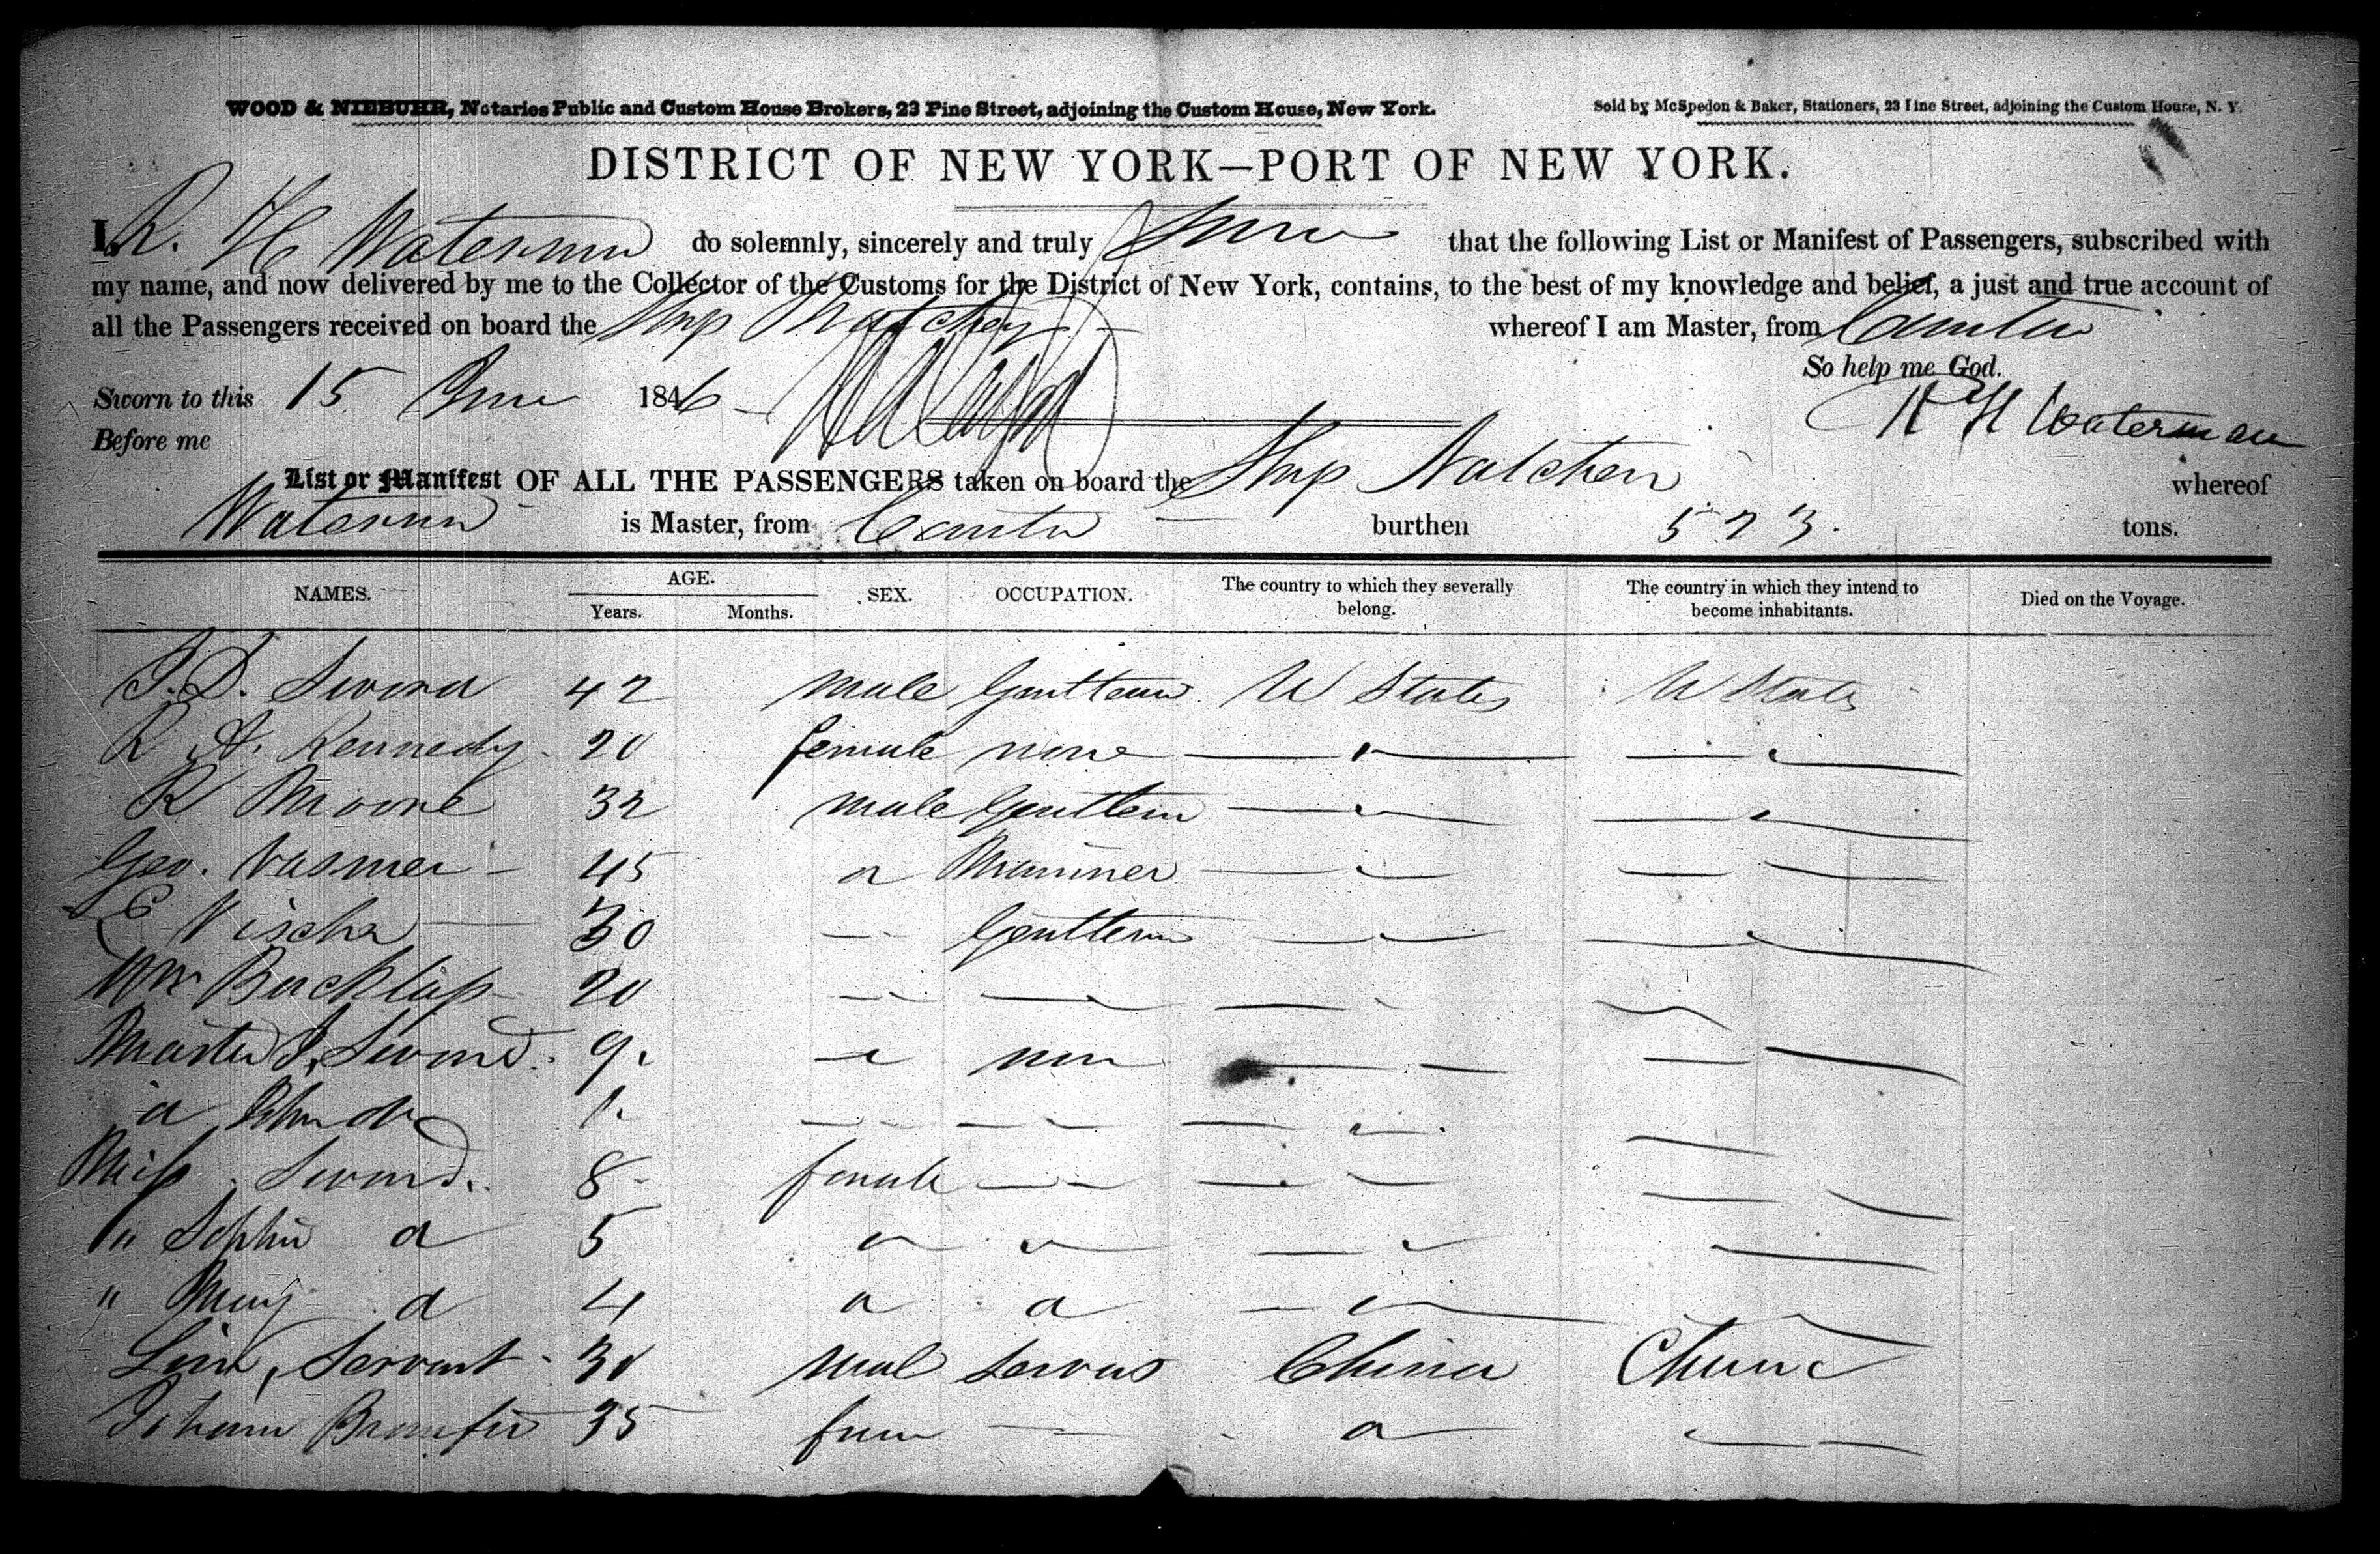 WOOD & NIEBUHR, Notaries Public and Custom House Brokers, 23 Pine Street, adjoining the Custom House, New York.
Sold by McSpedon & Baker, Stationers, 23 Pine Street, adjoining the Custom House, N. Y.
DISTRICT OF NEW YORK—PORT OF NEW YORK.
I, R. H Waterman do solemnly, sincerely and truly that the following List or Manifest of Passengers, subscribed with
my name, and now delivered by me to the Collector of the Customs for the District of New York, contains, to the best of my knowledge and belief, a just and true account of
all the Passengers received on board the Ship Natchez whereof I am Master, from Canton
So help me God.
Sworn to this 15 June 1846 R H Waterman
Before me
List or Manifest OF ALL THE PASSENGERS taken on board the Ship Natchez whereof
Waterman is Master, from Canton burthen 523 tons.
NAMES. AGE. Years. Months. SEX. OCCUPATION. The country to which they severally belong. The country in which they intend to become inhabitants. Died on the Voyage.
J. D. Sword 42 male Gentleman U States U States
R A. Kennedy 20 female none
R Moore 32 male Gentlem
Geo. Vasmer 45 Marriner
E Vischer 30 Gentleman
Mr 20
Master J. Sword 9
John do 1
Miss Sword 8 female
" Sophia d 5
" Mary d 4
Servant 30 mal China China
35 fem